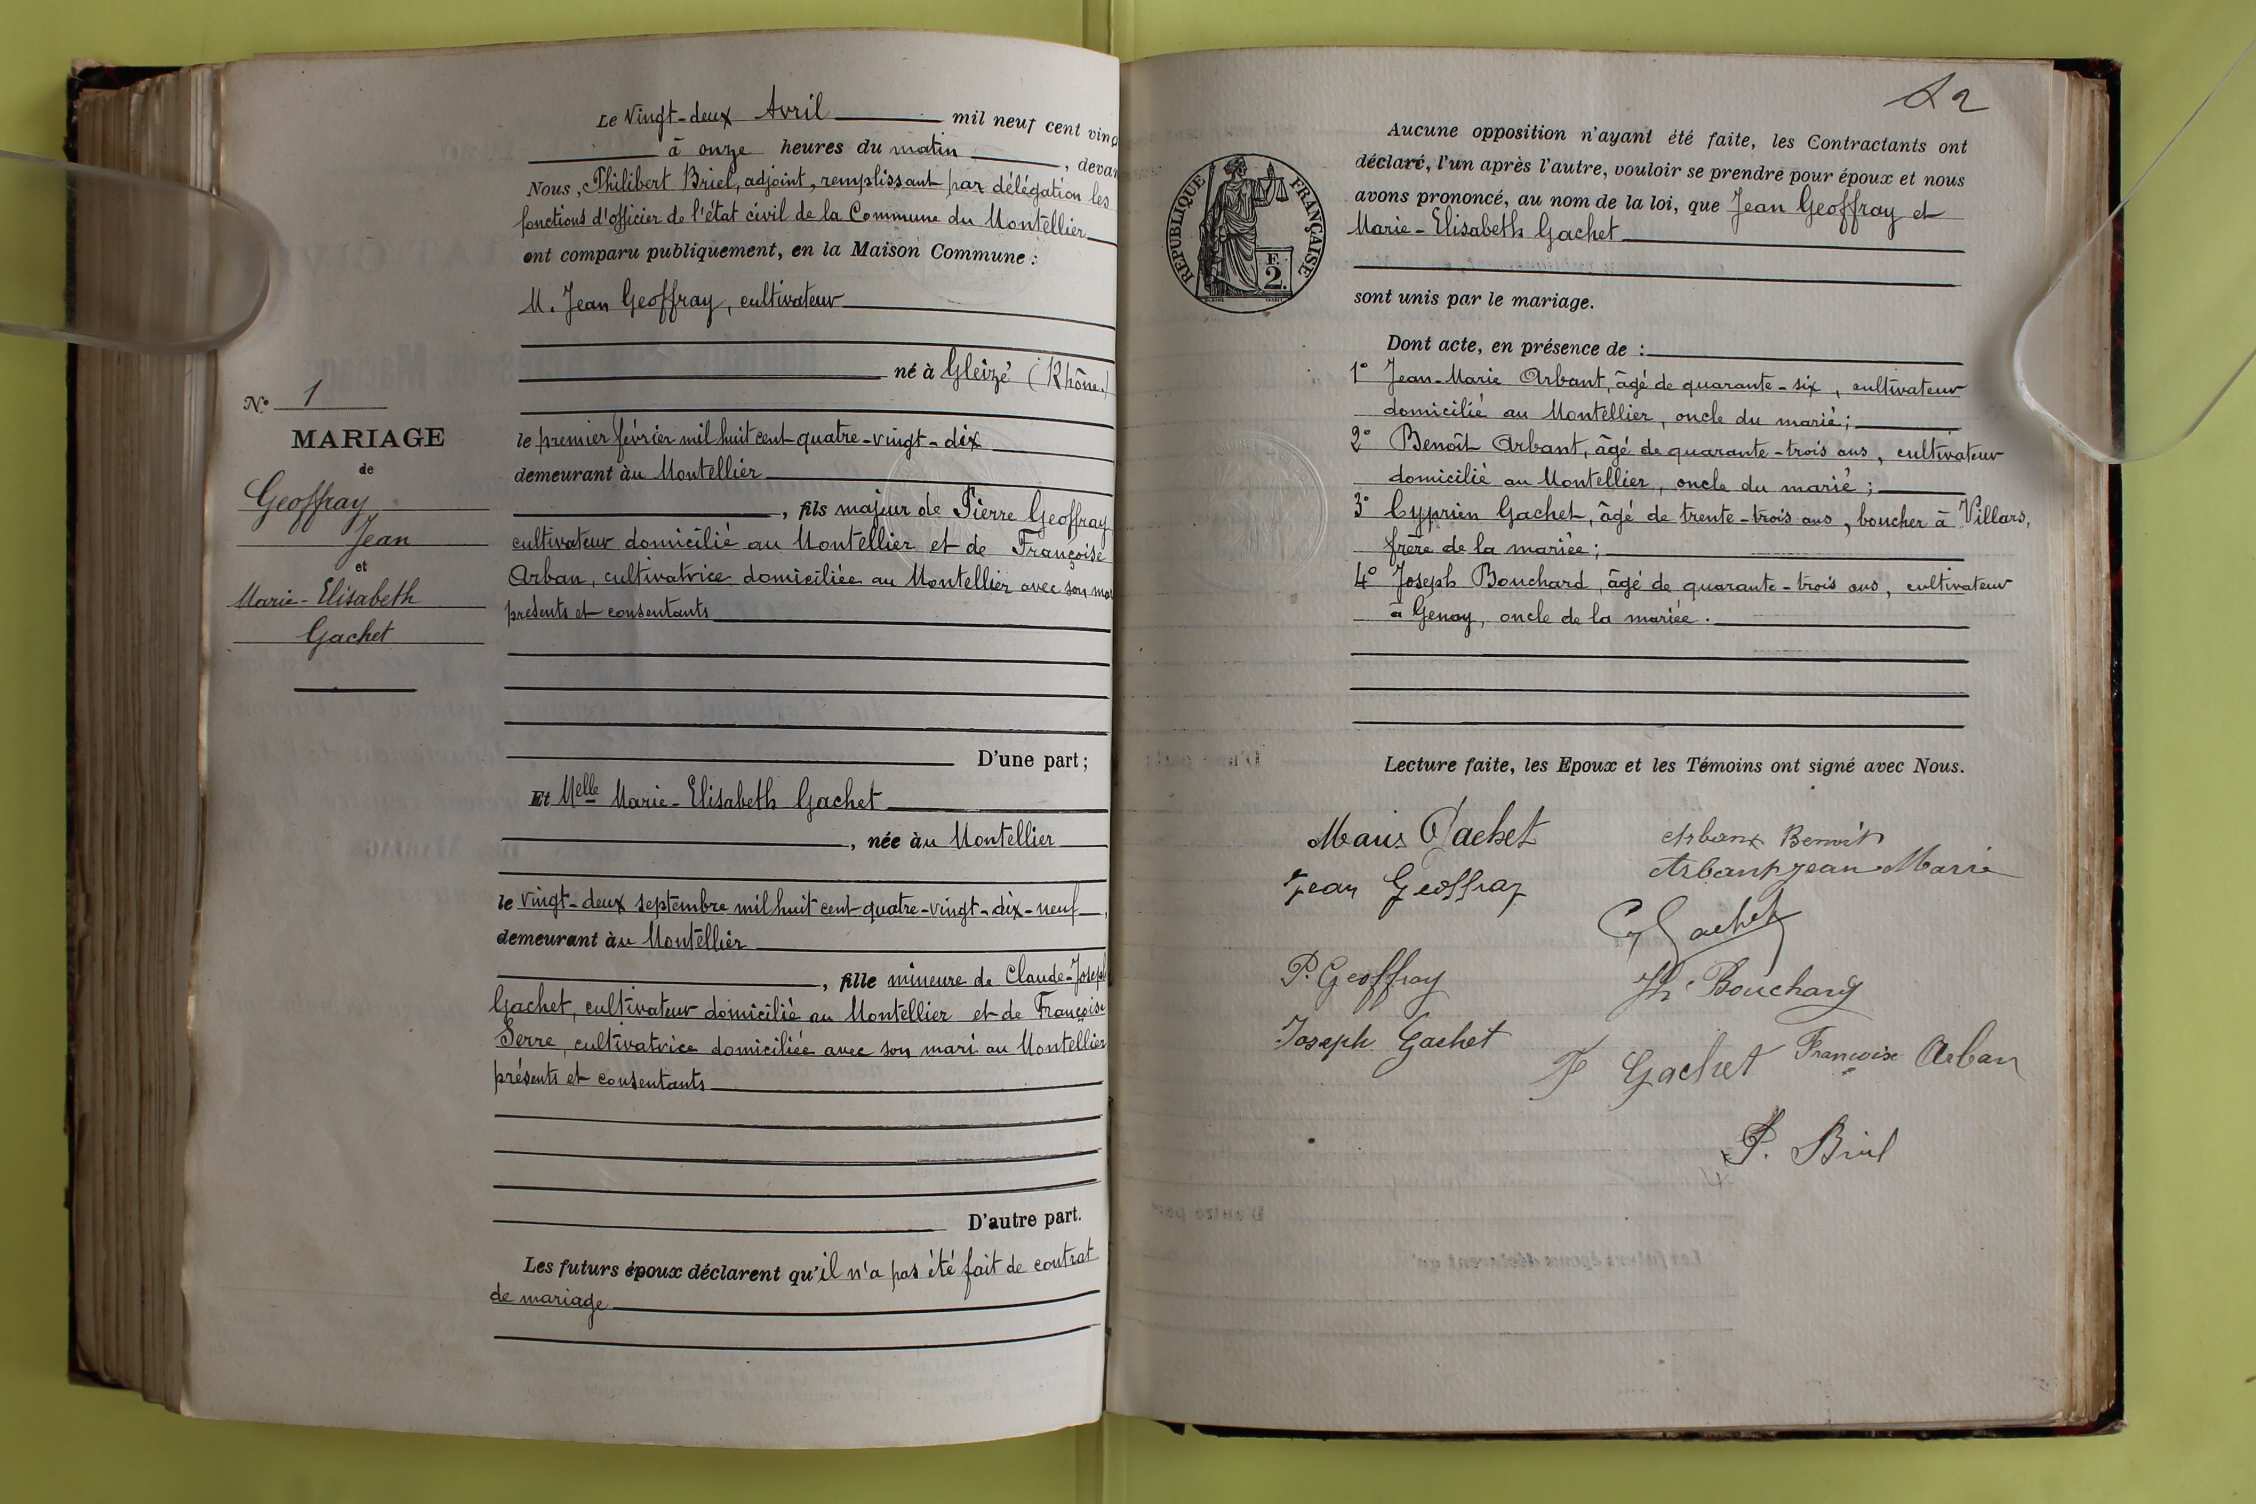 Le Vingt-deux Avril mil neuf cent vingt
à onze heures du matin, devan
Nous, Philibert Briel, adjoint, remplissant par délégation les
fonctions d'officier de l'état civil de la Commune du Montellier
ont comparu publiquement, en la Maison Commune :
M. Jean Geoffray, cultivateur
né à Gleizé (Rhône)
N° 1
MARIAGE
de
Geoffray
Jean
et
Marie-Elisabeth
Gachet
le premier février mil huit cent quatre-vingt-dix
demeurant àu Montellier
, fils majeur de Pierre Geoffray
cultivateur domicilié au Montellier et de Françoise
Arban, cultivatrice domiciliée au Montellier avec son mari
présents et consentants
D'une part ;
Et Melle Marie-Elisabeth Gachet
, née àu Montellier
le vingt-deux septembre mil huit cent quatre-vingt-dix-neuf,
demeurant àu Montellier
, fille mineure de Claude-Joseph
Gachet, cultivateur domicilié au Montellier et de Françoise
Serre, cultivatrice domiciliée avec son mari au Montellier
présents et consentants
D'autre part.
Les futurs époux déclarent qu'il n'a pas été fait de contrat
de mariage
RÉPUBLIQUE FRANÇAISE
F.
2.
Aucune opposition n'ayant été faite, les Contractants ont
déclaré, l'un après l'autre, vouloir se prendre pour époux et nous
avons prononcé, au nom de la loi, que Jean Geoffray et
Marie-Elisabeth Gachet
sont unis par le mariage.
Dont acte, en présence de :
1° Jean-Marie Arbant, âgé de quarante-six, cultivateur
domicilié au Montellier, oncle du marié ;
2° Benoît Arbant, âgé de quarante-trois ans, cultivateur
domicilié au Montellier, oncle du marié ;
3° Cyprien Gachet, âgé de trente-trois ans, boucher à Villars,
frère de la mariée ;
4° Joseph Bouchard, âgé de quarante-trois ans, cultivateur
à Genay, oncle de la mariée.
Lecture faite, les Epoux et les Témoins ont signé avec Nous.
Marie Gachet
Arbant Benoit
Jean Geoffray
Arbant Jean Marie
Cy Gachet
P. Geoffray
Jh Bouchard
Joseph Gachet
F Gachet
Françoise Arban
P. Briel